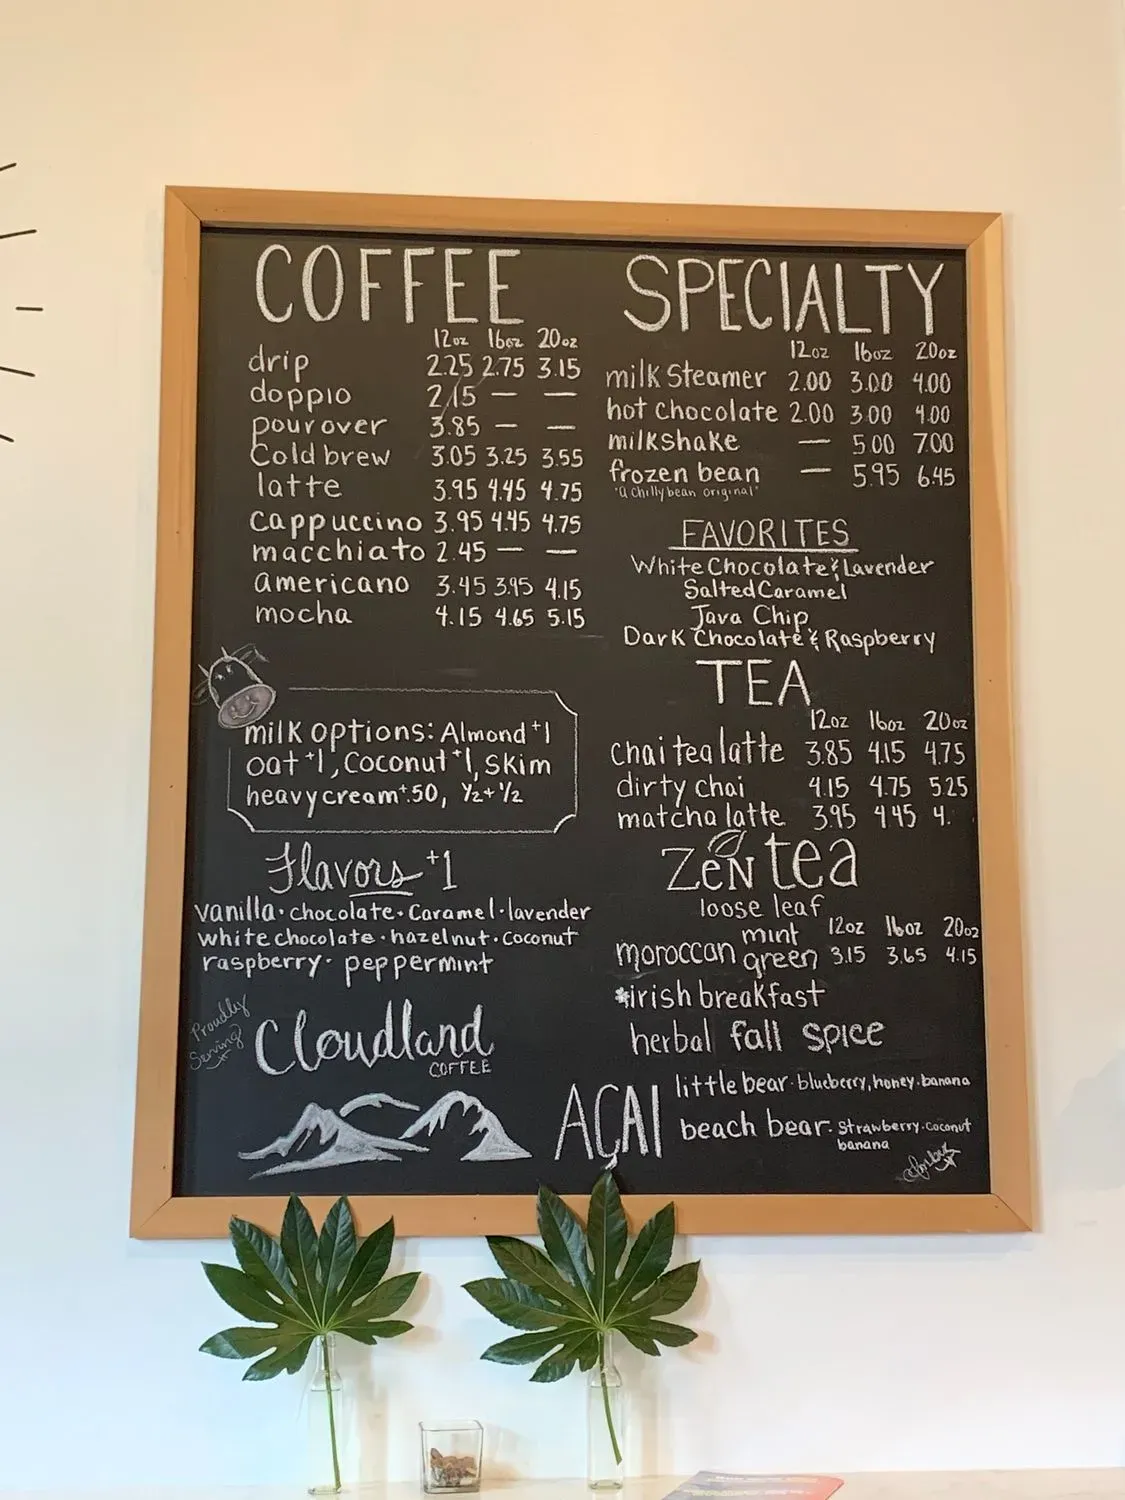 COFFEE
12oz 16oz 20oz
drip 2.25 2.75 3.15
doppio 2.15 — —
pourover 3.85 — —
Cold brew 3.05 3.25 3.55
latte 3.95 4.45 4.75
cappuccino 3.95 4.45 4.75
macchiato 2.45 — —
americano 3.45 3.95 4.15
mocha 4.15 4.65 5.15
milk options: Almond +1
oat +1, Coconut +1, skim
heavy cream +.50, ½ + ½
Flavors +1
vanilla · chocolate · Caramel · lavender
white chocolate · hazelnut · coconut
raspberry · peppermint
Proudly
Serving
Cloudland
COFFEE
SPECIALTY
12oz 16oz 20oz
milk Steamer 2.00 3.00 4.00
hot chocolate 2.00 3.00 4.00
milkshake — 5.00 7.00
frozen bean — 5.95 6.45
"a Chillybean original"
FAVORITES
White Chocolate & Lavender
Salted Caramel
Java Chip
Dark Chocolate & Raspberry
TEA
12oz 16oz 20oz
chai tea latte 3.85 4.15 4.75
dirty chai 4.15 4.75 5.25
matcha latte 3.95 4.45 4.
ZeN tea
loose leaf
12oz 16oz 20oz
moroccan mint green 3.15 3.65 4.15
*irish breakfast
herbal fall spice
AÇAI
little bear · blueberry, honey · banana
beach bear · Strawberry · coconut
banana